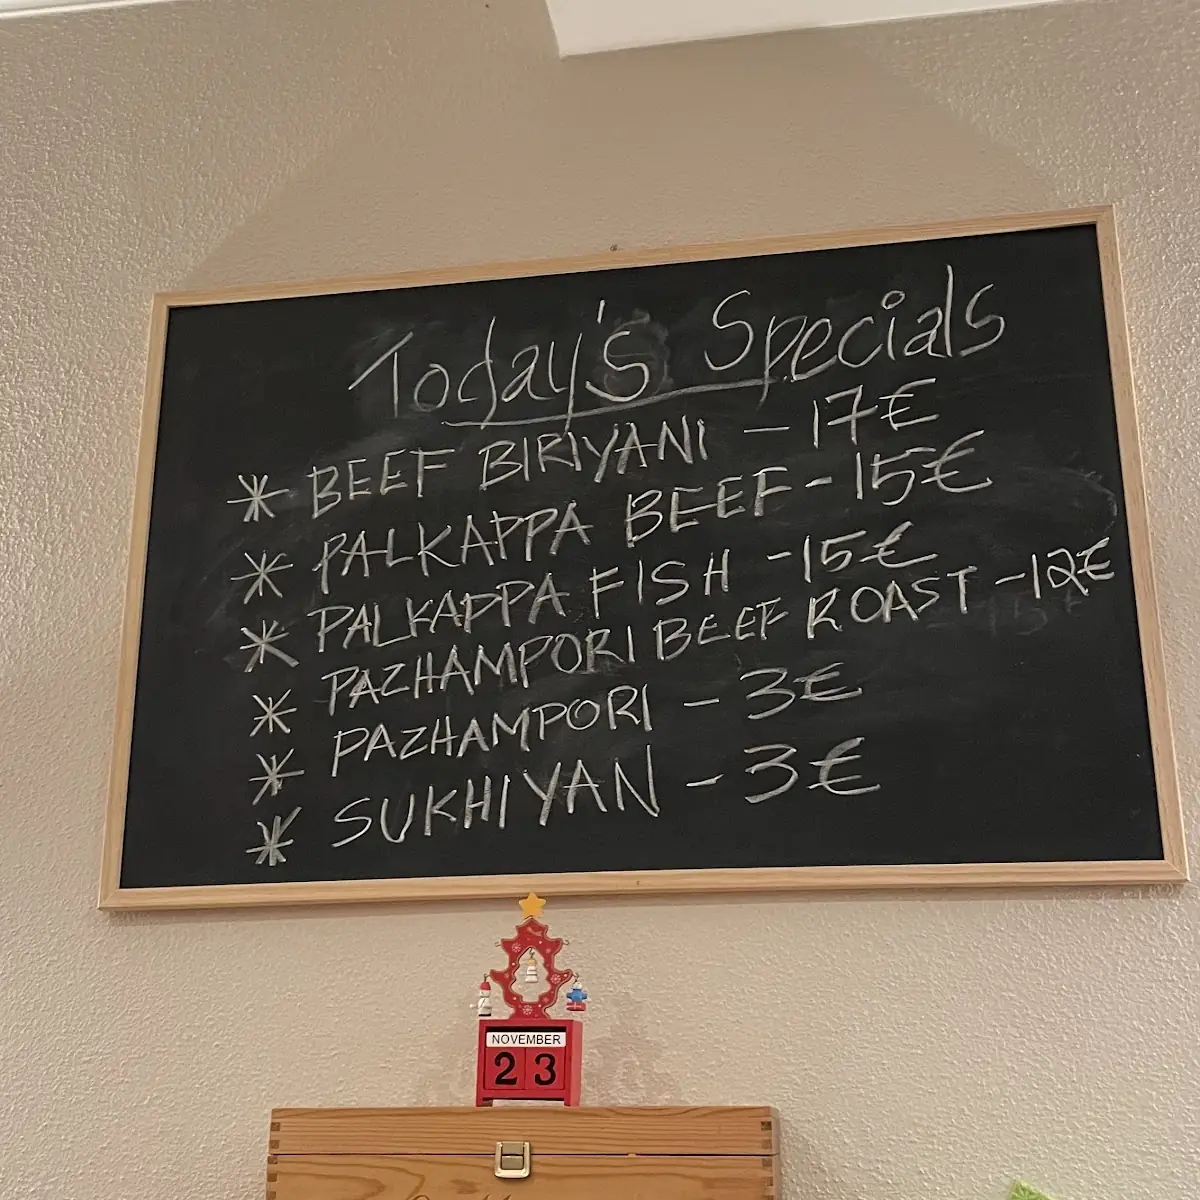 Today's Specials
* BEEF BIRIYANI - 17€
* PALKAPPA BEEF - 15€
* PALKAPPA FISH - 15€
* PAZHAMPORI BEEF ROAST - 12€
* PAZHAMPORI - 3€
* SUKHIYAN - 3€
NOVEMBER
23